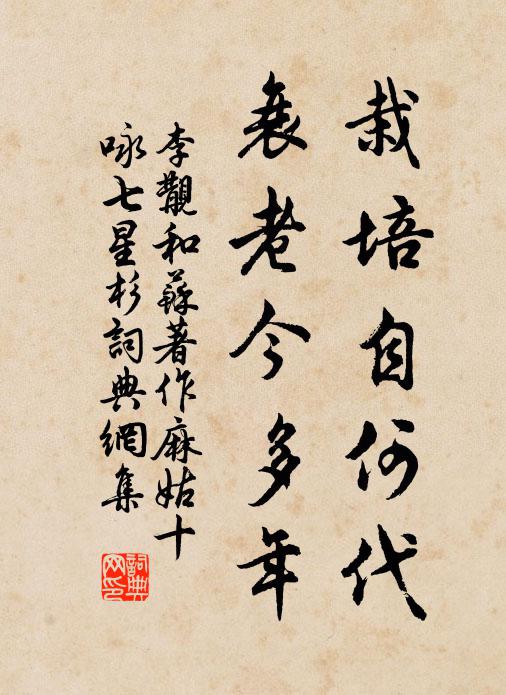 栽培自何代
衰老今多年
李覯和蘇著作麻姑十
咏七星杉詞典網集
詞典网印